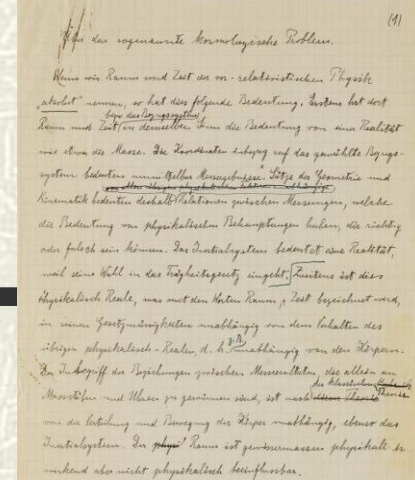 (1)
Über das sogenannte kosmologische Problem.
Wenn wir Raum und Zeit der vor-relativistischen Physik
"absolut" nennen, so hat dies folgende Bedeutung. Erstens hat dort
bezw. das Bezugssystem
Raum und Zeit in demselben Sinn die Bedeutung von einer Realität
wie etwa die Masse. Die Koordinaten inbezug auf das gewählte Bezugs-
system bedeuten unmittelbar Messergebnisse. Sätze der Geometrie und
Kinematik bedeuten deshalb Relationen zwischen Messungen, welche
die Bedeutung von physikalischen Behauptungen haben, die richtig
oder falsch sein können. Das Inertialsystem bedeutet eine Realität,
weil seine Wahl in das Trägheitsgesetz eingeht. Zweitens ist dies
physikalisch Reale, was mit den Worten Raum, Zeit bezeichnet wird,
in seinen Gesetzmässigkeiten unabhängig von dem Verhalten des
übrigen physikalisch-Realen, d. h. z. B. unabhängig von den Körpern.
Der Inbegriff der Beziehungen zwischen Messresultaten, die allein an
der klassischen Theorie
Massstäben und Uhren zu gewinnen sind, ist nach
von der Verteilung und Bewegung der Körper unabhängig, ebenso das
Inertialsystem. Der Raum ist gewissermassen physikalisch
wirkend aber nicht physikalisch beeinflussbar.